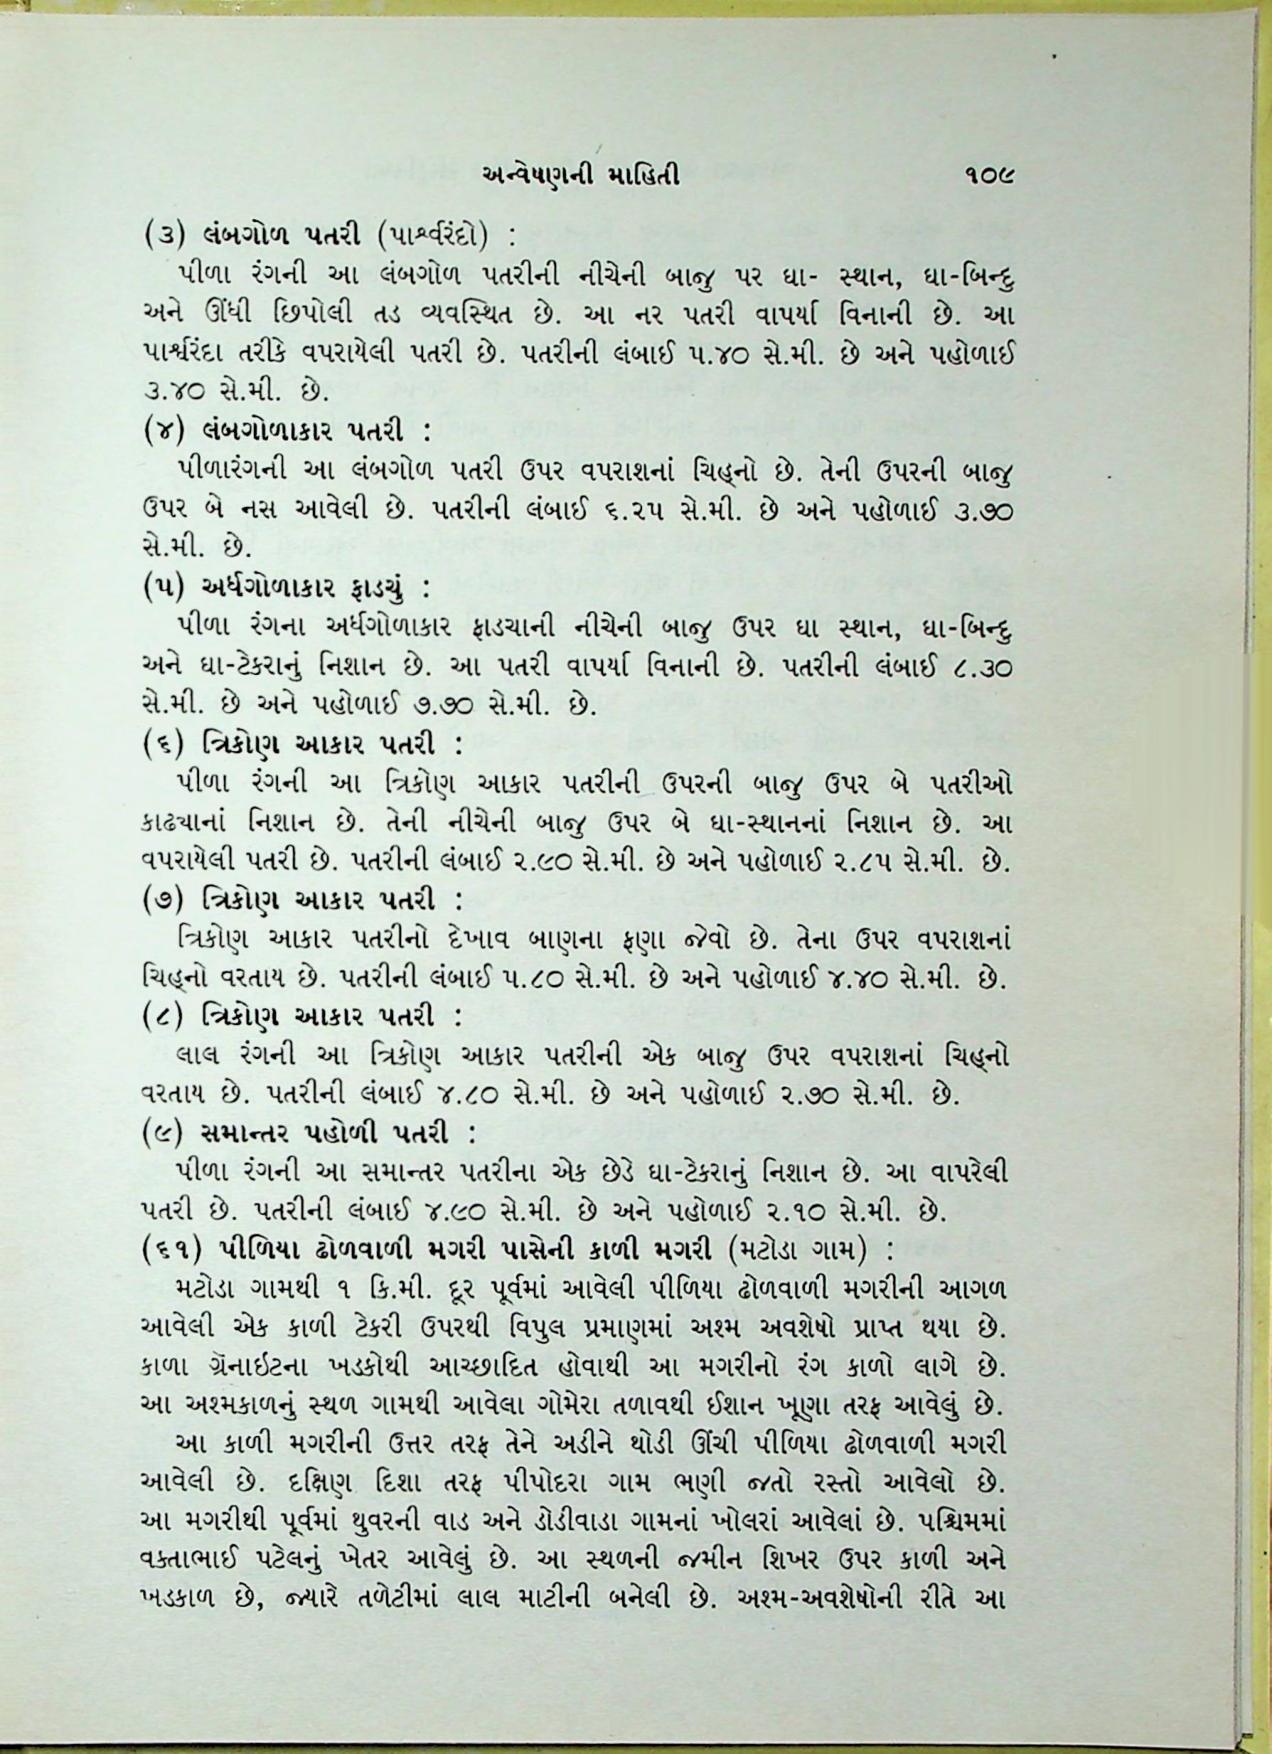 અન્વેષણની માહિતી ૧૦૯
(૩) લંબગોળ પતરી (પાર્શ્વરંદો) :
પીળા રંગની આ લંબગોળ પતરીની નીચેની બાજુ પર ઘા- સ્થાન, ઘા-બિન્દુ
અને ઊંધી છિપોલી તડ વ્યવસ્થિત છે. આ નર પતરી વાપર્યા વિનાની છે. આ
પાર્શ્વરંદા તરીકે વપરાયેલી પતરી છે. પતરીની લંબાઈ ૫.૪૦ સે.મી. છે અને પહોળાઈ
૩.૪૦ સે.મી. છે.
(૪) લંબગોળાકાર પતરી :
પીળારંગની આ લંબગોળ પતરી ઉપર વપરાશનાં ચિહ્નો છે. તેની ઉપરની બાજુ
ઉપર બે નસ આવેલી છે. પતરીની લંબાઈ ૬.૨૫ સે.મી. છે અને પહોળાઈ ૩.૭૦
સે.મી. છે.
(૫) અર્ધગોળાકાર ફાડચું :
પીળા રંગના અર્ધગોળાકાર ફાડચાની નીચેની બાજુ ઉપર ઘા સ્થાન, ઘા-બિન્દુ
અને ઘા-ટેકરાનું નિશાન છે. આ પતરી વાપર્યા વિનાની છે. પતરીની લંબાઈ ૮.૩૦
સે.મી. છે અને પહોળાઈ ૭.૭૦ સે.મી. છે.
(૬) ત્રિકોણ આકાર પતરી :
પીળા રંગની આ ત્રિકોણ આકાર પતરીની ઉપરની બાજુ ઉપર બે પતરીઓ
કાઢ્યાનાં નિશાન છે. તેની નીચેની બાજુ ઉપર બે ઘા-સ્થાનનાં નિશાન છે. આ
વપરાયેલી પતરી છે. પતરીની લંબાઈ ૨.૯૦ સે.મી. છે અને પહોળાઈ ૨.૮૫ સે.મી. છે.
(૭) ત્રિકોણ આકાર પતરી :
ત્રિકોણ આકાર પતરીનો દેખાવ બાણના ફણા જેવો છે. તેના ઉપર વપરાશનાં
ચિહ્નો વરતાય છે. પતરીની લંબાઈ ૫.૮૦ સે.મી. છે અને પહોળાઈ ૪.૪૦ સે.મી. છે.
(૮) ત્રિકોણ આકાર પતરી :
લાલ રંગની આ ત્રિકોણ આકાર પતરીની એક બાજુ ઉપર વપરાશનાં ચિહ્નો
વરતાય છે. પતરીની લંબાઈ ૪.૮૦ સે.મી. છે અને પહોળાઈ ૨.૭૦ સે.મી. છે.
(૯) સમાન્તર પહોળી પતરી :
પીળા રંગની આ સમાન્તર પતરીના એક છેડે ઘા-ટેકરાનું નિશાન છે. આ વાપરેલી
પતરી છે. પતરીની લંબાઈ ૪.૯૦ સે.મી. છે અને પહોળાઈ ૨.૧૦ સે.મી. છે.
(૬૧) પીળિયા ઢોળવાળી મગરી પાસેની કાળી મગરી (મટોડા ગામ) :
મટોડા ગામથી ૧ કિ.મી. દૂર પૂર્વમાં આવેલી પીળિયા ઢોળવાળી મગરીની આગળ
આવેલી એક કાળી ટેકરી ઉપરથી વિપુલ પ્રમાણમાં અશ્મ અવશેષો પ્રાપ્ત થયા છે.
કાળા ગ્રેનાઇટના ખડકોથી આચ્છાદિત હોવાથી આ મગરીનો રંગ કાળો લાગે છે.
આ અશ્મકાળનું સ્થળ ગામથી આવેલા ગોમેરા તળાવથી ઈશાન ખૂણા તરફ આવેલું છે.
આ કાળી મગરીની ઉત્તર તરફ તેને અડીને થોડી ઊંચી પીળિયા ઢોળવાળી મગરી
આવેલી છે. દક્ષિણ દિશા તરફ પીપોદરા ગામ ભણી જતો રસ્તો આવેલો છે.
આ મગરીથી પૂર્વમાં થુવરની વાડ અને ડોડીવાડા ગામનાં ખોલરાં આવેલાં છે. પશ્ચિમમાં
વક્તાભાઈ પટેલનું ખેતર આવેલું છે. આ સ્થળની જમીન શિખર ઉપર કાળી અને
ખડકાળ છે, જ્યારે તળેટીમાં લાલ માટીની બનેલી છે. અશ્મ-અવશેષોની રીતે આ